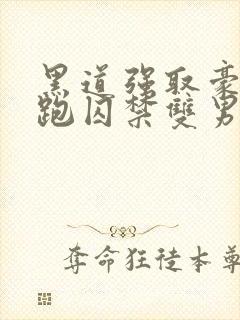 黑道强取豪
跑囚禁雙男
奪命狂徒本尊